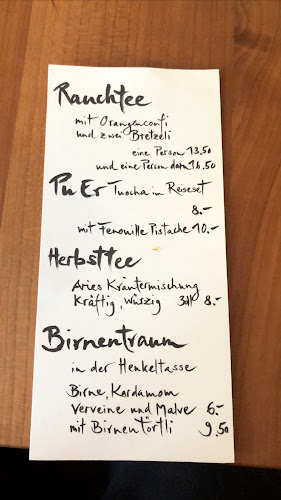 Rauchtee
mit Orangenconfi
und zwei Bretzeli
eine Person 13.50
und eine Person dazu 16.50
Pu Er Tuocha im Reiseset
8.-
mit Fenouille Pistache 10.-
Herbsttee
Aries Kräutermischung
Kräftig, würzig 3dl 8.-
Birnentraum
in der Henkeltasse
Birne, Kardamom
Verveine und Malve 6.-
mit Birnentörtli 9.50